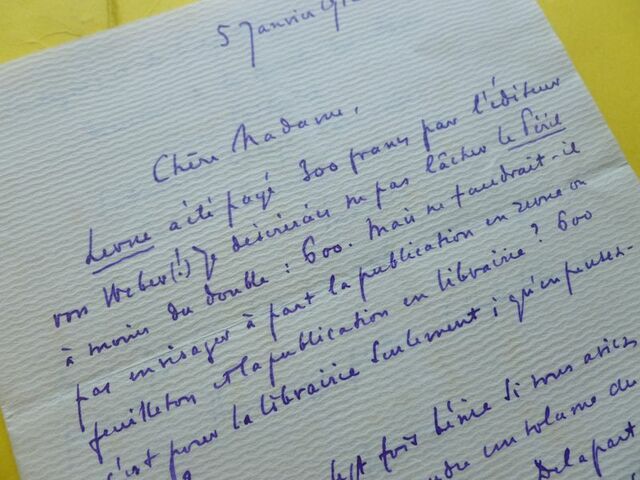 5 Janvier
Chère Madame,
a été payé 300 francs par l'éditeur
von Weber (!) Je désirerais ne pas lâcher le Péril
à moins du double : 600. Mais ne faudrait-il
pas envisager à part la publication en revue ou
feuilleton et la publication en librairie ? 600
c'est pour la librairie seulement ; qu'en pensez-
fois bénie si vous aviez
un volume du
De la part